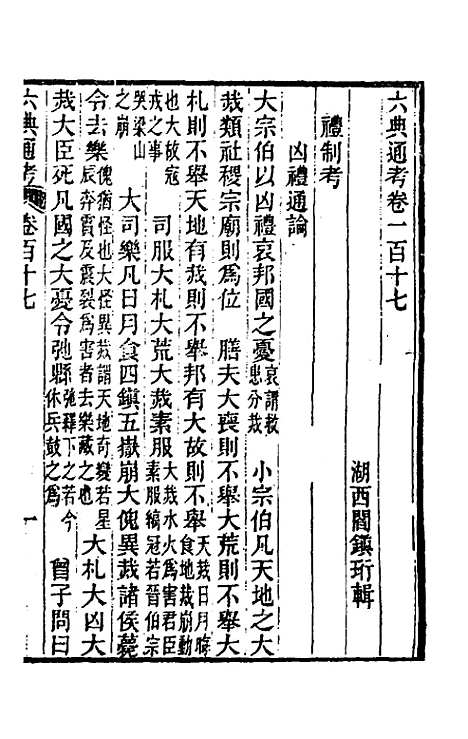 六典通考卷一百十七
湖西閻鎮珩輯
禮制考
凶禮通論
大宗伯以凶禮哀邦國之憂哀謂救患分烖　小宗伯凡天地之大
烖類社稷宗廟則爲位　膳夫大喪則不舉大荒則不舉大
札則不舉天地有烖則不舉邦有大故則不舉天烖日月晦食地烖崩動
也大故寇戒之事　司服大札大荒大烖素服大烖水火爲害君臣素服縞冠若晉伯宗
哭梁山之崩　大司樂凡日月食四鎮五嶽崩大傀異烖諸侯薨
令去樂傀猶怪也大怪異烖謂天地奇變若星辰奔霣及震裂爲害者去樂藏之也　大札大凶大
烖大臣死凡國之大憂令弛縣弛釋下之若今休兵鼓之爲　曾子問曰
六典通考　卷百十七　一